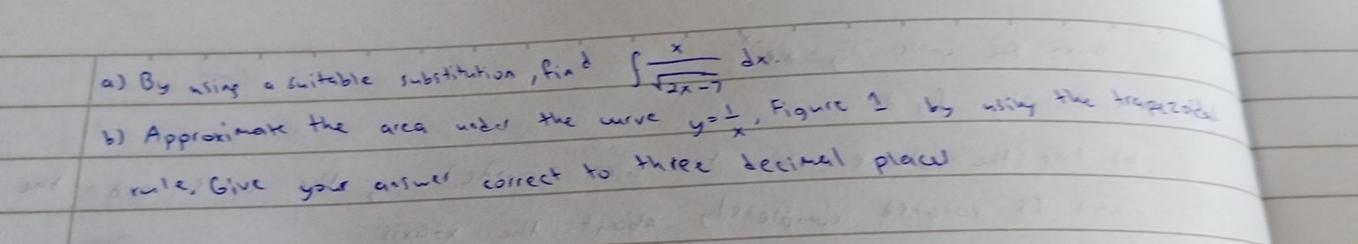 a) By using a suitable substitution, find ∫ x/√(2x-7) dx.
b) Approximate the area under the curve y = 1/x, Figure 1 by using the trapezoidal
rule. Give your answer correct to three decimal places